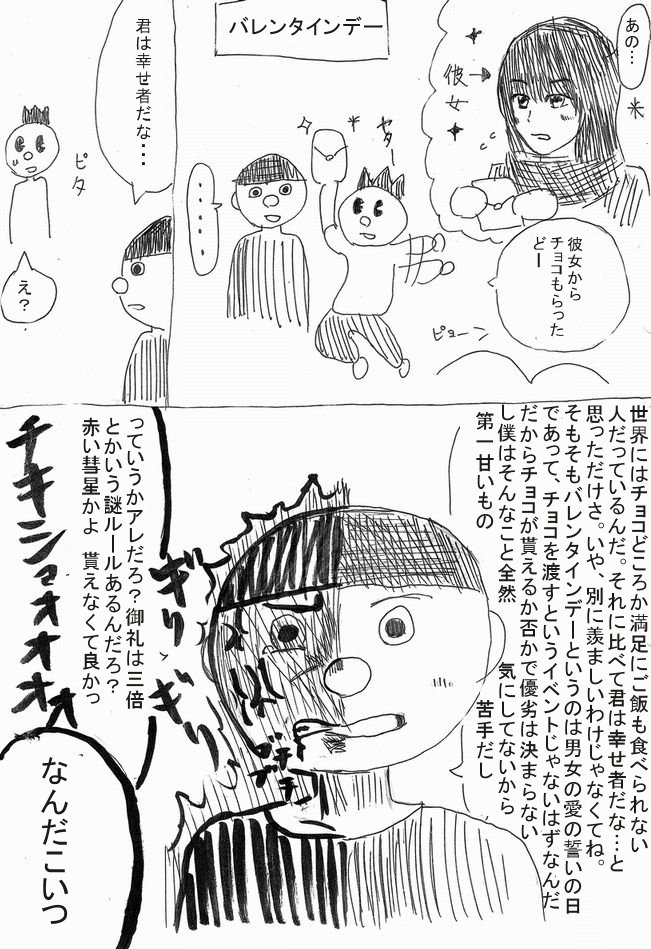 バレンタインデー
あの…
彼女
彼女から
チョコもらった
どー
ピョーン
ヤター
・・・・・
君は幸せ者だな・・・
ピタ
え?
世界にはチョコどころか満足にご飯も食べられない
人だっているんだ。それに比べて君は幸せ者だな…と
思っただけさ。いや、別に羨ましいわけじゃなくてね。
そもそもバレンタインデーというのは男女の愛の誓いの日
であって、チョコを渡すというイベントじゃないはずなんだ
だからチョコが貰えるか否かで優劣は決まらない
し僕はそんなこと全然 気にしてないから
第一甘いもの 苦手だし
っていうかアレだろ?御礼は三倍
とかいう謎ルールあるんだろ?
赤い彗星かよ 貰えなくて良かっ
ギリ
ギリ
ブチ
ブチ
チキショオオオオ
なんだこいつ